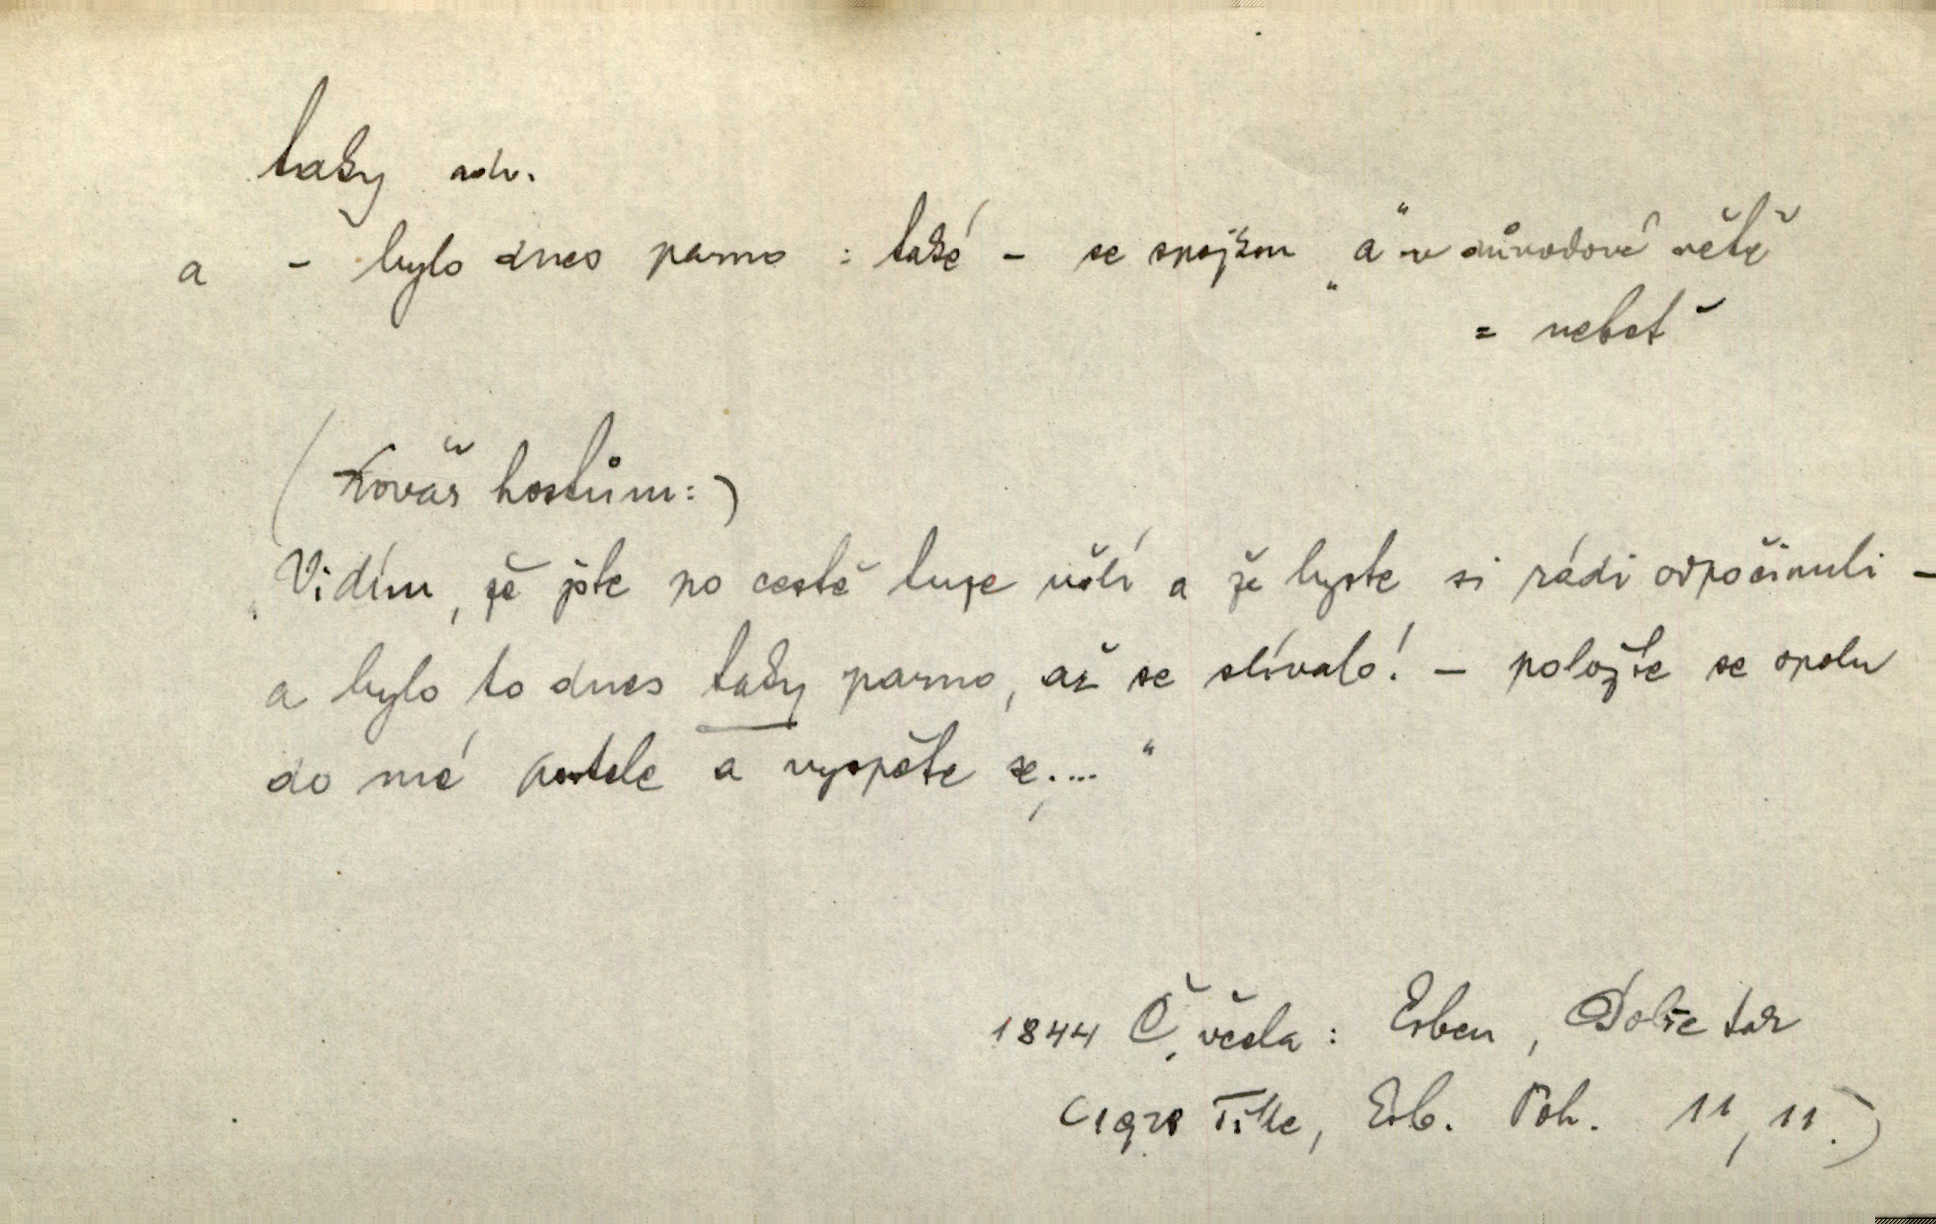 taky adv.
a – bylo dnes parno : také – se spojkou „a“ v důvodové větě
= neboť
(Kovář hostům:)
„Vidím, že jste po cestě tuze ušlí a že byste si rádi odpočinuli –
a bylo to dnes taky parno, až se slívalo! – položte se spolu
do mé postele a vyspěte se;...“
1844 Č. včela: Erben, Dobře tak
(1928 Tille, Erb. Poh. 11, 11.)